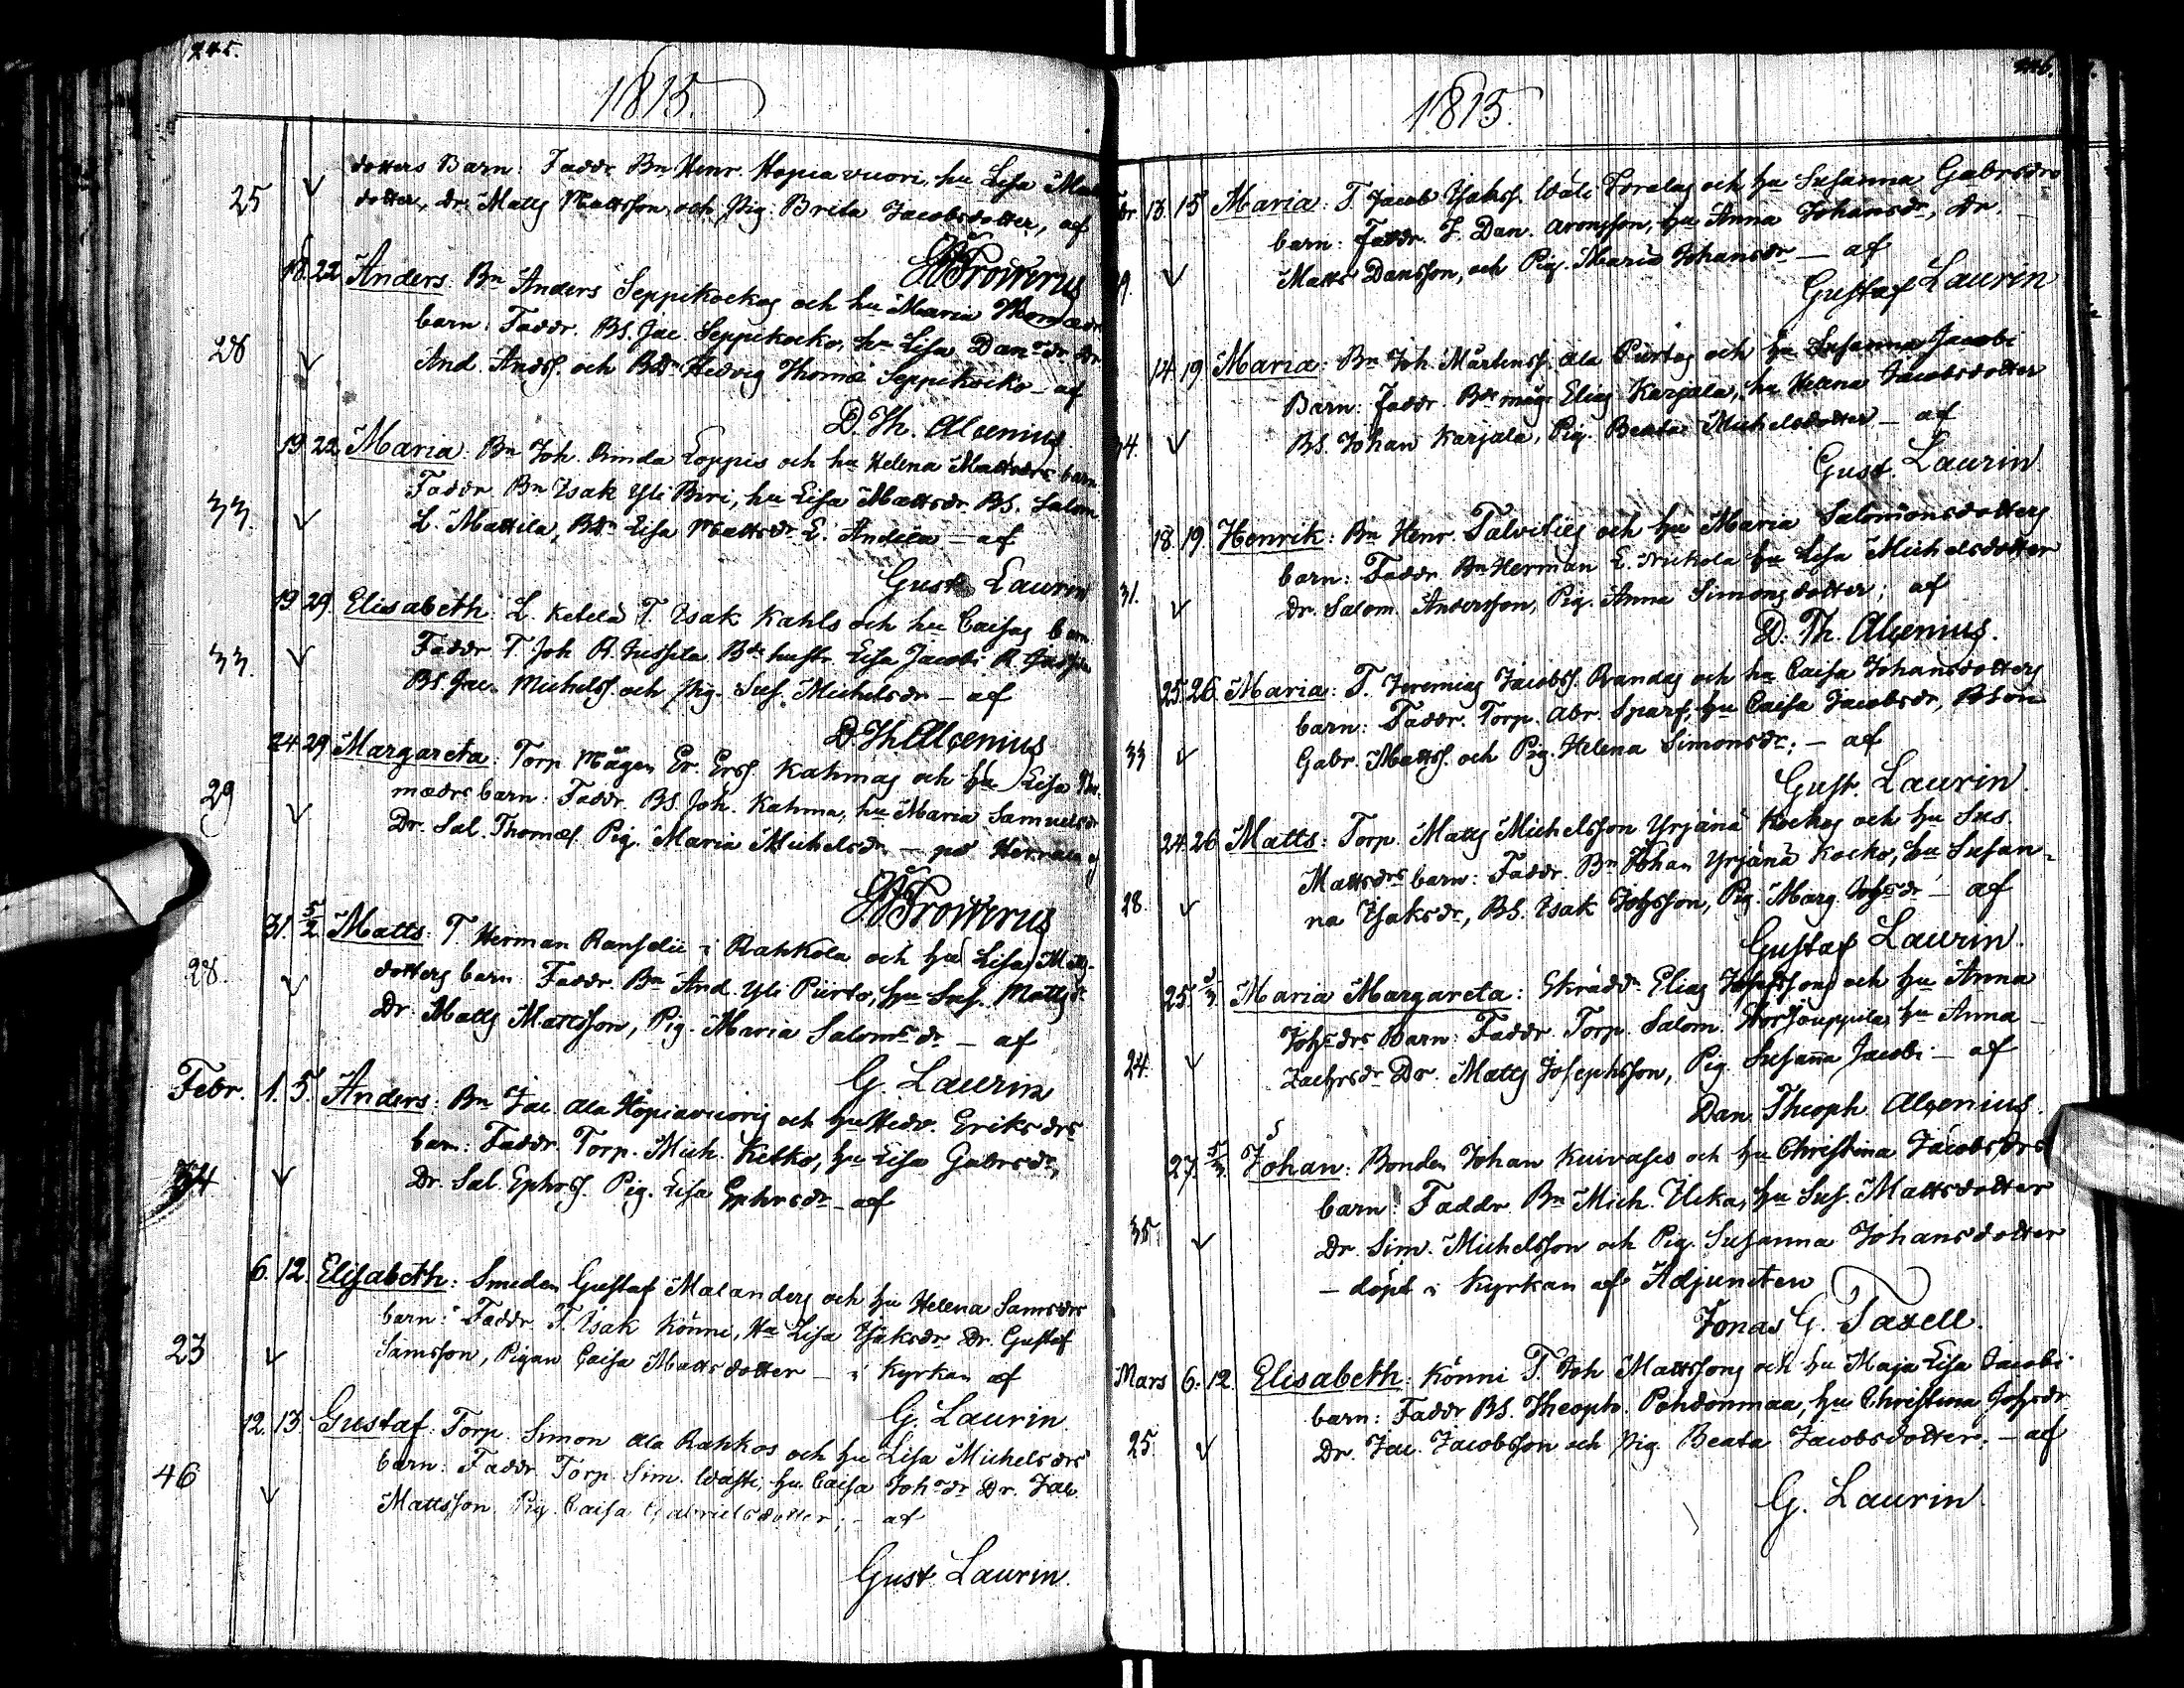 245.
1815.
dotters Barn: Faddr. Bn Henr. Hopia vuori, hu Lisa Matts
25 dotter, Dr. Matts Mattsson och Pig: Brita Jacobsdotter, af
Frowerus
18. 22 Anders: Bn Anders Seppikockos och hu Maria Thomædr
barn: Faddr. BS. Jac. Seppikocko, hu Lisa Dansdr Dr
28 And. Andss. och Bdr Hedvig Thomæ Seppikocko – af
D. Th. Alcenius
19 22 Maria: Bn Joh. Rinda Loppis och hu Helena Mattsdrs barn.
Faddr. Bn Isak Yli Biri, hu Lisa Mattsdr BS. Salom
33. L. Mattila, Bdr Lisa Mattsdr L. Andila – af
Gust. Laurin
19 29 Elisabeth: L. Ketela T. Isak Kahls och hu Caisas barn.
Faddr. T. Joh R. Jussila Bde hustr. Lisa Jacobi R. Jussila
33. BS. Jac. Michelss. och Pig. Sus. Michelsdr – af
D. Th. Alcenius
24 29 Margareta: Torp. Mågen Er. Erss. Kahmas och hu Lisa Tho-
mædrs barn: Faddr. BS. Joh. Kahma, hu Maria Samuelsdr
29 Dr. Sal. Thomæs. Pig. Maria Michelsdr. – på Herrala af
Frowerus
31. 5/2 Matts: T. Herman Ranselii i Rahkola och hu Lisa Matts-
dotters barn: Faddr. Bn And. Yli Purto, hu Sus. Mattsdr
28. Dr. Matts Mattsson, Pig. Maria Salomsdr – af
G. Laurin
Febr. 1. 5. Anders: Bn Jac. Ala Hopiavuoris och hu Hedv. Eriksdrs
barn: Faddr. Torp. Mich. Ketko, hu Lisa Gabrsdr,
34 Dr. Sal. Ephrss. Pig. Lisa Ephrsdr – af
6. 12. Elisabeth: Smeden Gustaf Malanders och hu Helena Samsdrs
barn: Faddr. T. Isak Könni, Hu Lisa Isaksdr Dr. Gustaf
23 Samsson, Pigan Caisa Mattsdotter – i Kyrkan af
G. Laurin
12. 13. Gustaf: Torp. Simon Ala Rahkos och hu Lisa Michelsdrs
barn: Faddr. Torp. Sim. Wästi, hu Caisa Johsdr Dr. Jac
46 Mattsson. Pig. Caisa Gabrielsdotter; – af
Gust. Laurin.
1815.
Febr 13. 15 Maria: T. Jacob Isakss. Wäli Toralas och hu Susanna Gabrsdrs
barn: Faddr. T. Dan. Aronsson, hu Anna Johansdr, Dr.
Matts Dansson, och Pig. Maria Johansdr – af
Gustaf Laurin
14. 19 Maria: Bn Joh. Mårtenss. Ala Purtos och hu Susanna Jacobi
Barn: Faddr. Bde måg. Elias Karjala, hu Helena Jacobsdotter
34. BS. Johan Karjala, Pig. Beata Michelsdotter – af
Gust. Laurin
18. 19. Henrik: Bn Henr. Talvities och hu Maria Salomonsdotters
barn: Faddr. Bn Herman L. Nickola hu Lisa Michelsdotter
31. Dr. Salom. Andersson, Pig. Anna Simonsdotter; af
D. Th. Alcenius.
25. 26. Maria: T. Jeremias Jacobss. Randas och hu Caisa Johansdotters
barn: Faddr. Torp. Abr. Sparf, hu Caisa Jacobsdr, BSon
33 Gabr. Mattss. och Pig. Helena Simonsdr; – af
Gust. Laurin.
24. 26 Matts: Torp. Matts Michelsson Yrjänä Kockos och hu Sus.
Mattsdrs barn: Faddr. Bn Johan Yrjänä Kocko, hu Susan-
28. na Isaksdr, BS. Isak Johsson, Pig. Marg. Johsdr – af
Gustaf Laurin.
25. 5/3. Maria Margareta: Skrädd. Elias Josephssons och hu Anna
Johsdrs Barn: Faddr. Torp. Salom. Storjouppila, hu Anna
24. Zachrsdr Dr. Matts Josephsson, Pig. Susanna Jacobi – af
Dan. Theoph. Alcenius.
27. 5/3. Johan: Bonden Johan Kuivases och hu Christina Jacobsdrs
barn: Faddr. Bn Mich. Ucka, hu Sus. Mattsdotter
35 Dr. Sim. Michelsson och Pig. Susanna Johansdotter
– döpt i Kyrkan af Adjuncten
Jonas G. Taxell.
Mars 6. 12. Elisabeth: Könni T. Joh Mattssons och hu Maja Lisa Jacobi
barn: Faddr BS. Theoph. Pohdonmaa, hu Christina Johsdr
25. Dr. Jac. Jacobsson och Pig. Beata Jacobsdotter: – af
G. Laurin.